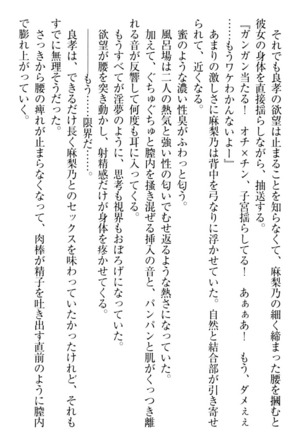 それでも良孝の欲望は止まることを知らなくて、麻梨乃の細く締まった腰を掴むと
彼女の身体を直接揺らしながら、抽送する。
「ガンガン当たる！　オチ×チン、子宮揺らしてる！　あぁぁあ！　もう、ダメぇえ
――もうワケわかんないよー」
あまりの激しさに麻梨乃は背中を弓なりに浮かせていた。自然と結合部が引き寄せ
られて、近くなる。
蜜のような濃い性臭がふわっと匂う。
風呂場は二人の熱気と強い性の匂いでむせ返るような熱さになっていた。
加えて、ぐちゅぐちゅと膣内を掻き混ぜる挿入の音と、パンパンと肌がくっつき離
れる音が反響して何度も耳に入ってくる。
もうすべてが淫夢のように、思考も視界もおぼろげになっていた。
欲望が腰を突き動かし、射精感だけが身体を疼かせてくる。
――もう……限界だ……。
良孝は、できるだけ長く麻梨乃とのセックスを味わっていたかったけれど、それも
すでに無理そうだった。
さっきから腰の痺れが止まらなくなって、肉棒が精子を吐き出す直前のように膣内
で膨れ上がっていく。